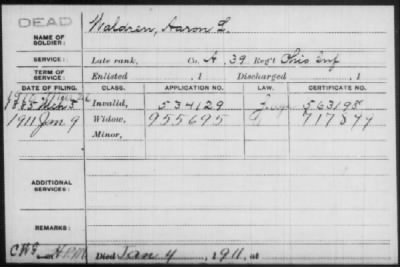 DEAD
NAME OF SOLDIER: Waldren, Aaron L.
SERVICE: Late rank, Co. A, 39 Reg't Ohio Inf
TERM OF SERVICE: Enlisted , 1 Discharged , 1
DATE OF FILING. CLASS. APPLICATION NO. LAW. CERTIFICATE NO.
Invalid, 534129 563195
1911 Jan 9 Widow, 955695
Minor,
ADDITIONAL SERVICES:
REMARKS:
Died Jan 4, 1911, at